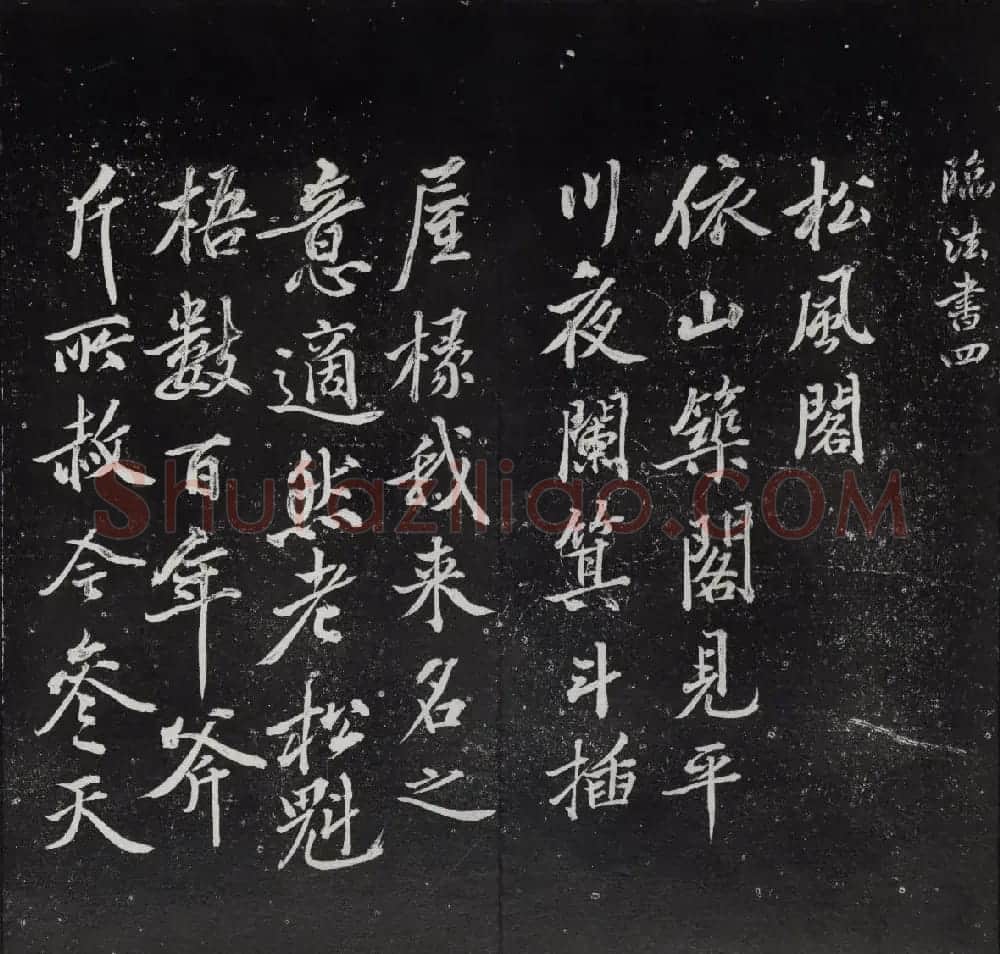 臨法書四
松風閣
依山築閣見平
川夜闌箕斗插
屋椽我来名之
意適然老松魁
梧數百年斧
斤所赦今參天
ShufaZiliao.COM